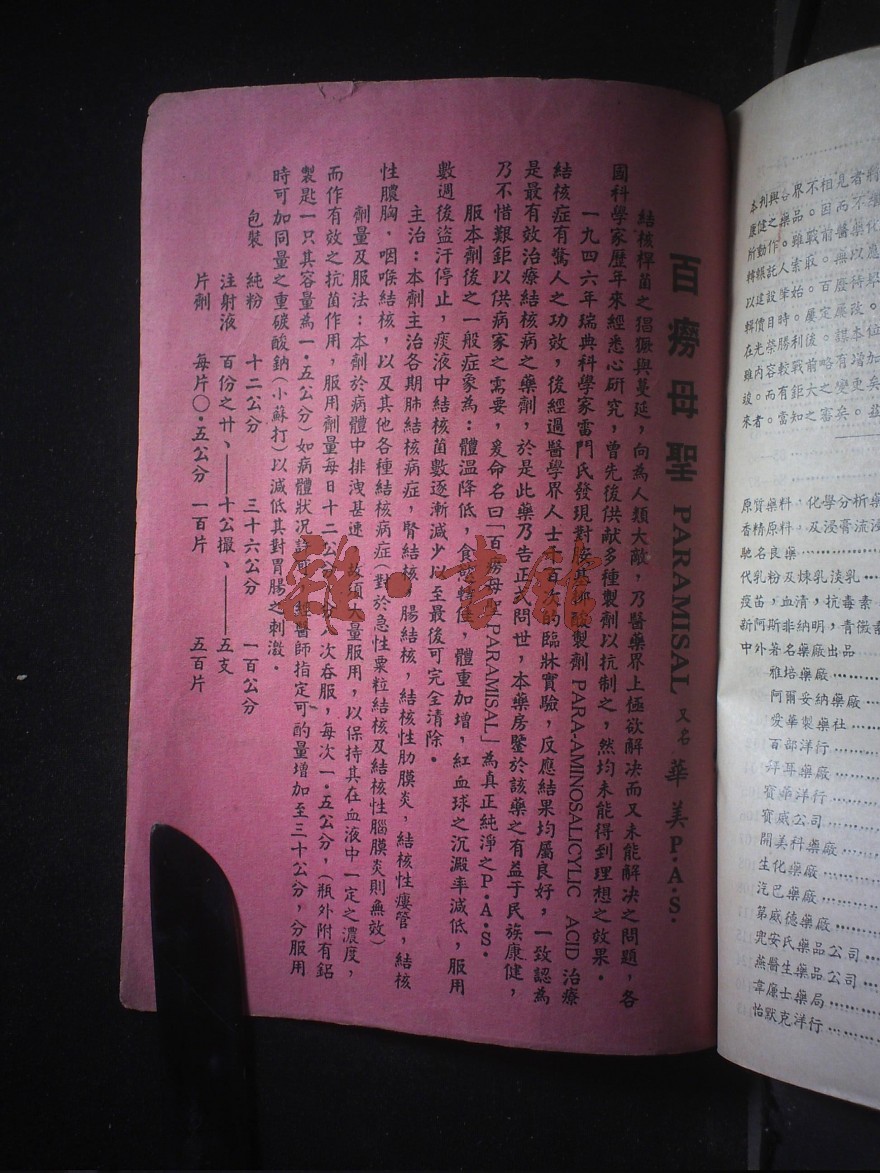 百癆母聖 PARAMISAL 又名 華美P.A.S.
結核桿菌之猖獗與蔓延，向為人類大敵，乃醫藥界上極欲解决而又未能解决之問題，各
國科學家歷年來經悉心研究，曾先後供献多種製劑以抗制之，然均未能得到理想之效果．
一九四六年瑞典科學家雷門氏發現對
製劑 PARA-AMINOSALICYLIC ACID 治療
結核症有驚人之功效，後經過醫學界人士
百次的臨牀實驗，反應結果均屬良好，一致認為
是最有效治療結核病之藥劑，於是此藥乃告正式問世，本藥房鑒於該藥之有益于民族康健，
乃不惜艱鉅以供病家之需要，爰命名曰「百癆母聖 PARAMISAL」為真正純淨之P.A.S.
服本劑後之一般症象為：體溫降低，食慾轉佳，體重加增，紅血球之沉澱率減低，服用
數週後盜汗停止，痰液中結核菌數逐漸減少以至最後可完全清除．
主治：本劑主治各期肺結核病症，腎結核，腸結核，結核性肋膜炎，結核性瘻管，結核
性膿胸．咽喉結核，以及其他各種結核病症（對於急性粟粒結核及結核性腦膜炎則無效）
劑量及服法：本劑於病體中排洩甚速，故須大量服用，以保持其在血液中一定之濃度，
而作有效之抗菌作用，服用劑量每日十二公分，分八次吞服，每次一．五公分，（瓶外附有鋁
製匙一只其容量為一．五公分）如病體狀况
經醫師指定可酌量增加至三十公分，分服用
時可加同量之重碳酸鈉（小蘇打）以減低其對胃腸之刺激．
包裝 純粉 十二公分 三十六公分 一百公分
注射液 百份之廿、——十公撮、——五支
片劑 每片〇．五公分 一百片 五百片
雜·書館
本刊與各界不相見者將
康健之藥品。因而不
所動作。雖戰前醫藥
轉輾託人索取。藥以應
以建設肇始。百廢待舉
輯價目時。屢定屢改。
在光榮勝利後。謀本位
雖内容較戰前略有增加
竣。而有鉅大之變更矣
來者。當知之審矣。
原質藥料，化學分析藥
香精原料，及浸膏流浸
馳名良藥
代乳粉及煉乳淡乳
疫苗，血清，抗毒素
新阿斯非納明，青黴素
中外著名藥廠出品
雅培藥廠
阿爾妥納藥廠
愛華製藥社
百部洋行
拜耳藥廠
寶華洋行
寶威公司
開美科藥廠
生化藥廠
汽巴藥廠
第威德藥廠
兜安氏藥品公司
燕醫生藥品公司
韋廉士藥局
怡默克洋行